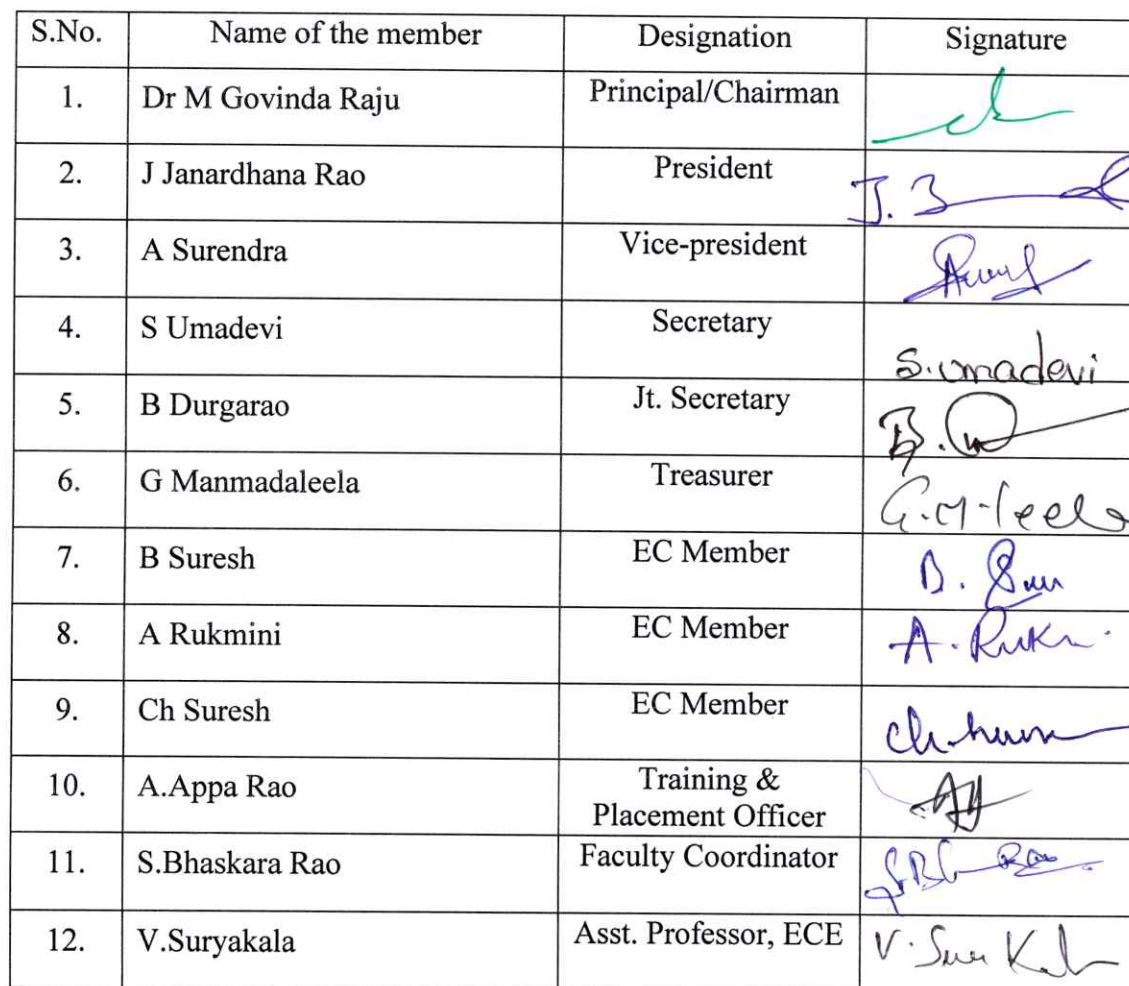 S.No. Name of the member Designation Signature
1. Dr M Govinda Raju Principal/Chairman
2. J Janardhana Rao President J.
3. A Surendra Vice-president
4. S Umadevi Secretary S.Umadevi
5. B Durgarao Jt. Secretary B.
6. G Manmadaleela Treasurer G.M.leela
7. B Suresh EC Member B.
8. A Rukmini EC Member A.
9. Ch Suresh EC Member Ch.
10. A.Appa Rao Training &
Placement Officer
11. S.Bhaskara Rao Faculty Coordinator
12. V.Suryakala Asst. Professor, ECE V.